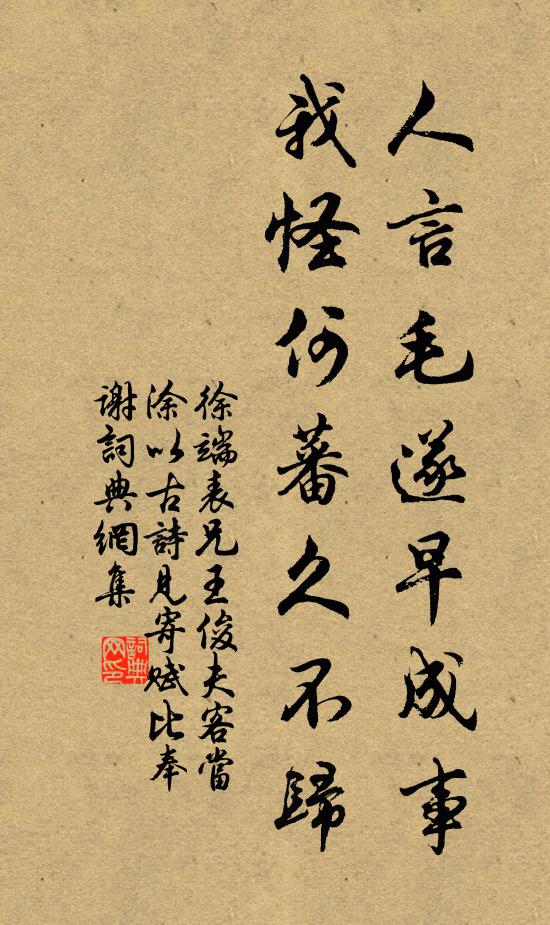 人言毛遂早成事
我怪何蕃久不歸
徐端表兄王俊夫客當
涂以古詩見寄賦比奉
謝詞典網集
詞典網印